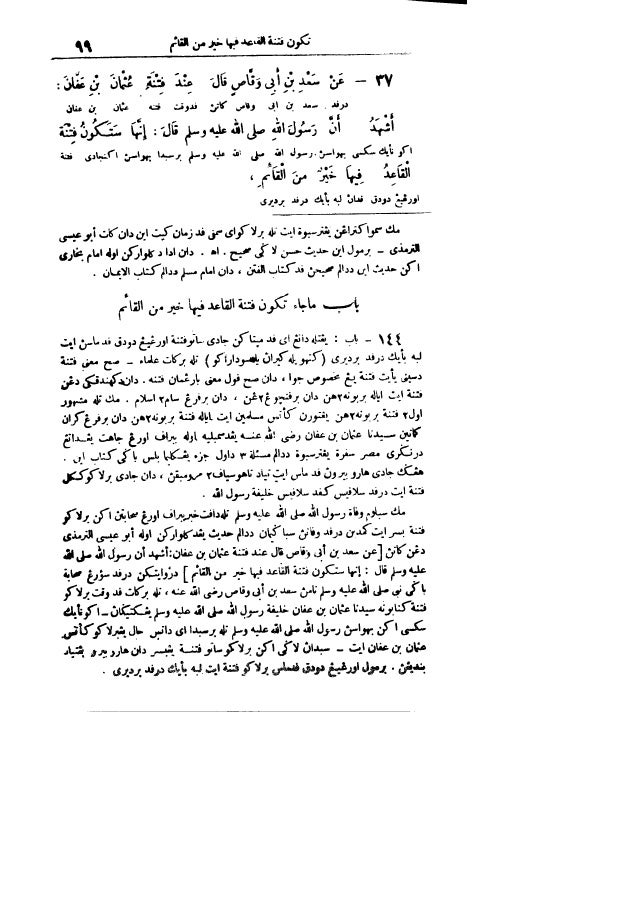 تكون فتنة القاعد فيها خير من القائم ٩٩
٣٧ – عَنْ سَعْدِ بْنِ أَبِى وَقَّاصٍ قَالَ عِنْدَ فِتْنَةِ عُثْمَانَ بْنِ عَفَّانَ :
درفد سعد بن ابى وقاص كاتن فدوقت فتنه عثمان بن عفان
أَشْهَدُ أَنَّ رَسُولَ اللهِ صلى الله عليه وسلم قَالَ : إِنَّهَا سَتَكُونُ فِتْنَةٌ
اكو نأيك سكسى بهواسن رسول الله صلى الله عليه وسلم برسبدا بهواسن اكنجادى فتنة
الْقَاعِدُ فِيهَا خَيْرٌ مِنَ الْقَائِمِ ،
اورڠيڠ دودق فدان لبه بأيك درفد برديرى
مك سموا كتراڠن يڠترسبوة ايت تله برلاكوى سمى فد زمان كيت اين دان كات أبو عيسى
الترمذى – برمول اين حديث حسن لاكى صحيح . اه . دان ادا دكلواركن اوله امام بخارى
اكن حديث اين ددالم صحيحن فد كتاب الفتن ، دان امام مسلم ددالم كتاب الايمان .
باب ماجاء تكون فتنة القاعد فيها خير من القائم
١٤٤ – باب : يڠتله داتڠ اى فد ميتاكن جادى ساتو فتنة اورڠيڠ دودق فد ماسن ايت
لبه بأيك درفد برديرى ( ) تله بركات علماء – صح معنى فتنة
دسينى يأيت فتنة يڠ مخصوص جوا ، دان صح فول معنى بارڠمان فتنه . دان كهندقكى دڠن
فتنة ايت اياله بربونه٢هن دان دان برفرڠ سام٢ اسلام . مك تله مشهور
اول٢ فتنة بربونه٢هن يڠتورن كأتس مسلمين ايت اياله فتنة بربونه٢هن دان برفرڠ كران
سيدنا عثمان بن عفان رضى الله عنه يڠد اوله بيراف اورڠ جاهت يڠداتڠ
درنڬرى مصر سفرة يڠترسبوة ددالم مسئلة ٣ داول جزء يڠكلما بلس باڬى كتاب اين .
هڠڬ جادى هارو بيرو فد ماس ايت تياد ، دان جادى برلاكو
فتنة ايت درفد سلافيس كفد سلافيس خليفة رسول الله .
مك سبلوم وفاة رسول الله صلى الله عليه وسلم تله دافت خبر بيراف اورڠ صحابتن اكن برلاكو
فتنة بسر ايت كمدين درفد وفاتن سباڬيمان ددالم حديث يڠد كلواركن اوله أبو عيسى الترمذى
دڠن كاتن [ عن سعد بن أبى وقاص قال عند فتنة عثمان بن عفان: أشهد أن رسول الله صلى الله
عليه وسلم قال : إنها ستكون فتنة القاعد فيها خير من القائم ] دروايتكن درفد سؤرڠ صحابة
باڬى نبى صلى الله عليه وسلم نامن سعد بن أبى وقاص رضى الله عنه ، تله بركات فد وقت برلاكو
فتنة سيدنا عثمان بن عفان خليفة رسول الله صلى الله عليه وسلم – اكو نأيك
سكسى اكن بهواسن رسول الله صلى الله عليه وسلم تله برسبدا اى داتس حال يڠبرلاكو كأتس
عثمان بن عفان ايت – سبدان لاڬى اكن برلاكو ساتو فتنة يڠبسر دان هارو بيرو يڠتياد
بنديڠن . برمول اورڠيڠ دودق فد ماس برلاكو فتنة ايت لبه بأيك درفد برديرى .